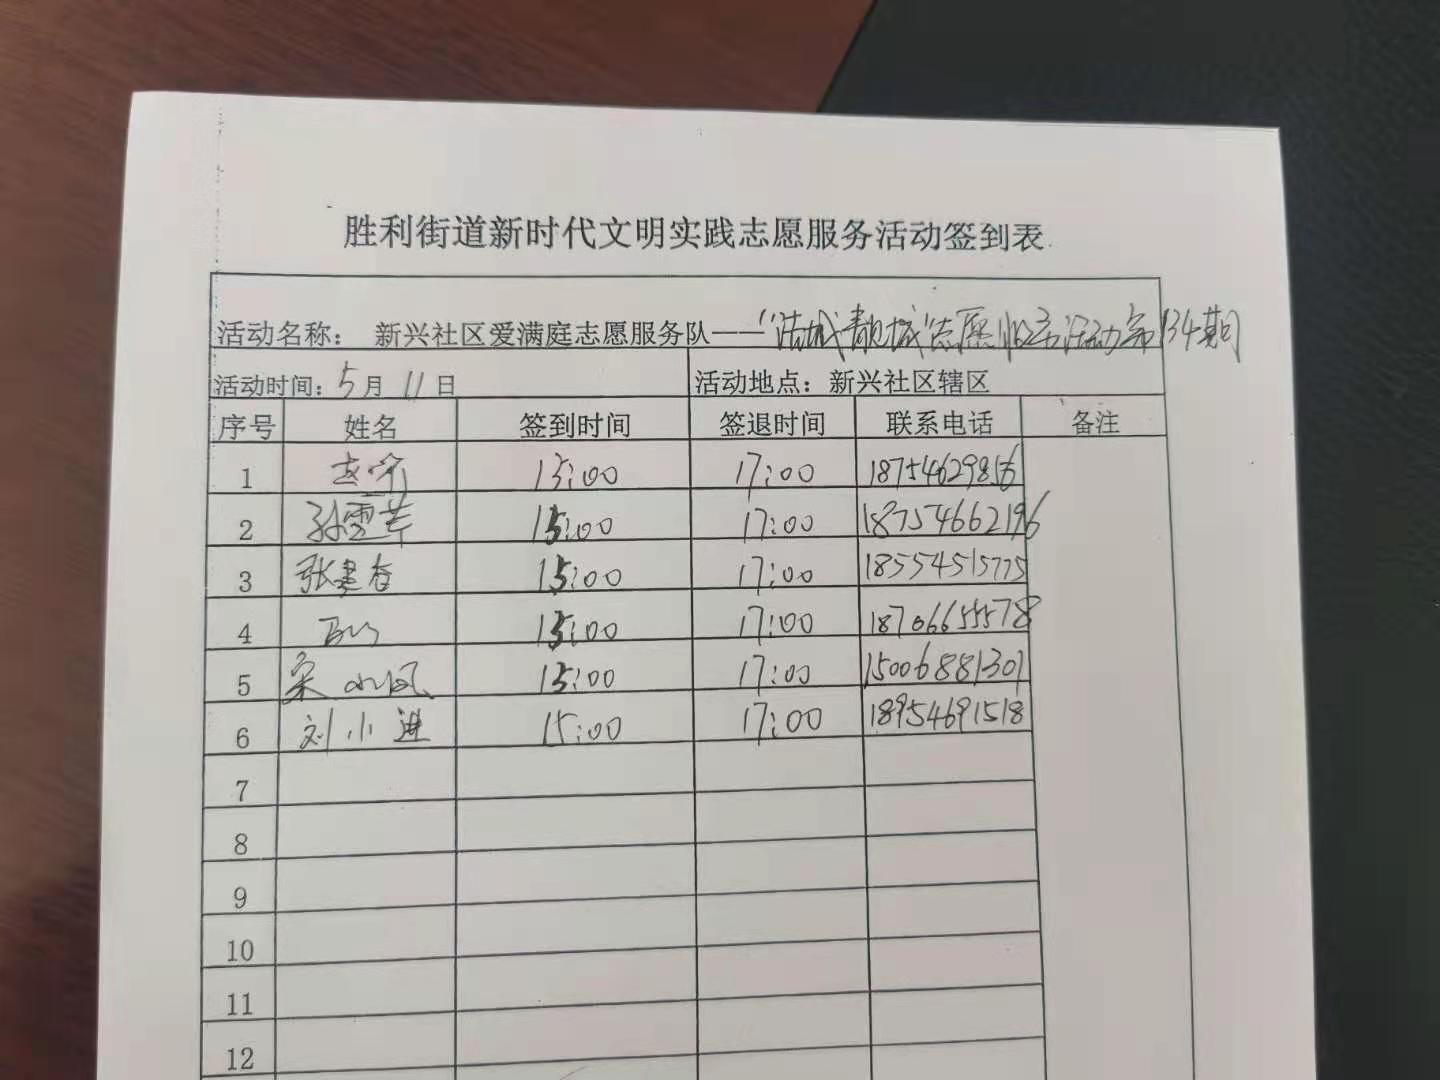 胜利街道新时代文明实践志愿服务活动签到表
活动名称： 新兴社区爱满庭志愿服务队——"洁城靓城"志愿服务活动第134期
活动时间：5月11日 活动地点：新兴社区辖区
序号 姓名 签到时间 签退时间 联系电话 备注
1 15:00 17:00 187546298
2 孙雪芹 15:00 17:00 18754662196
3 张建春 15:00 17:00 18554515775
4 15:00 17:00 18706655578
5 宋小凤 15:00 17:00 15006881301
6 刘小进 15:00 17:00 18954691518
7
8
9
10
11
12